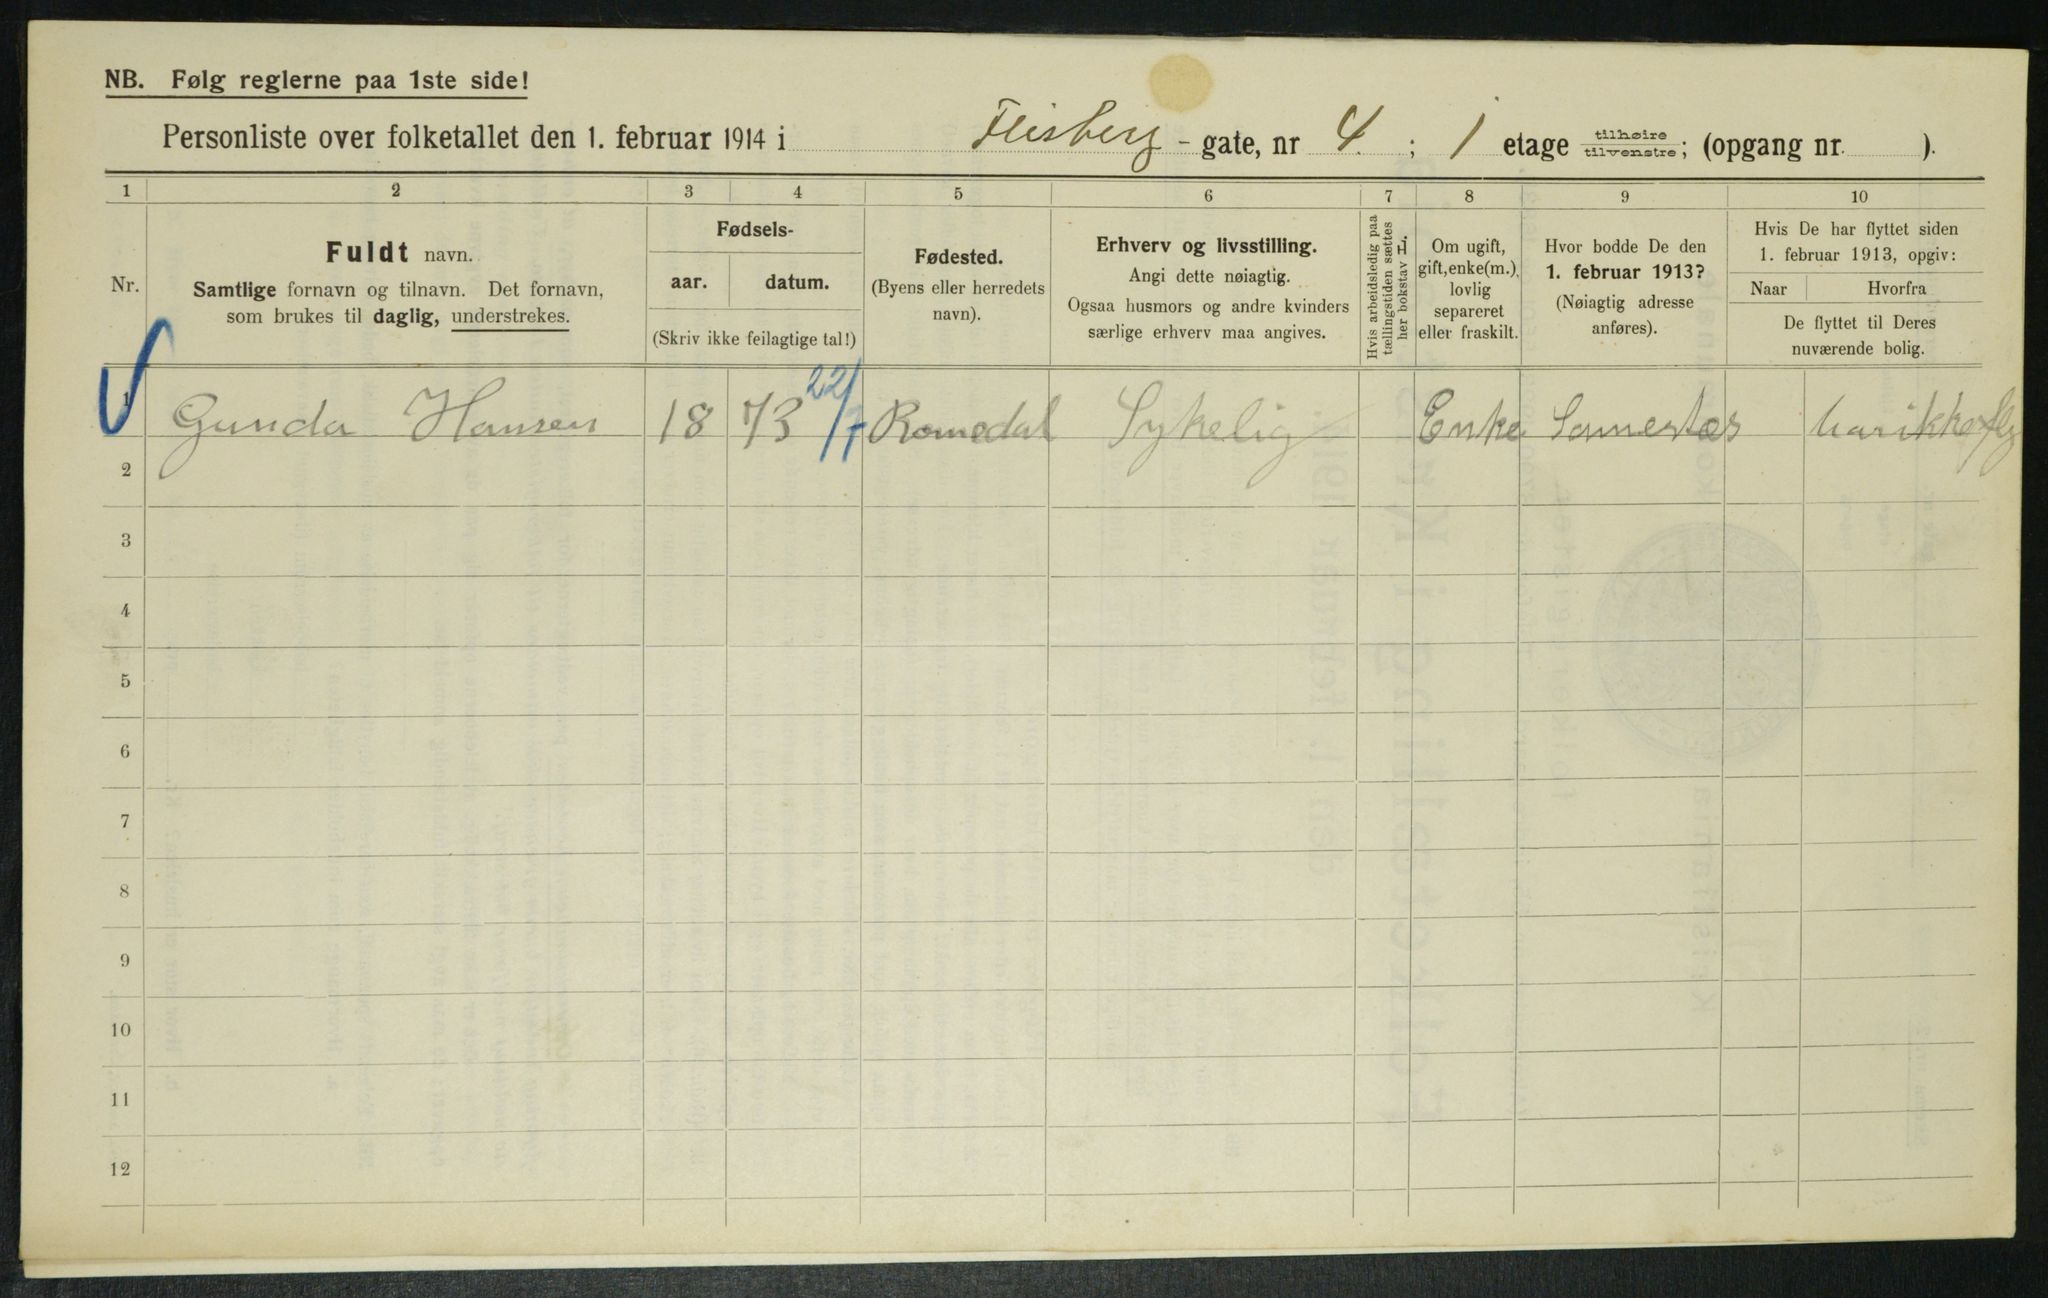 NB. Følg reglerne paa 1ste side!
Personliste over folketallet den 1. februar 1914 i Fleisberg - gate, nr 4. ; 1 etage tilhøire tilvenstre; (opgang nr. ).
1 2 3 4 5 6 7 8 9 10
Nr.
Fuldt navn.
Samtlige fornavn og tilnavn. Det fornavn,
som brukes til daglig, understrekes.
Fødsels-
aar. datum.
(Skriv ikke feilagtige tal!)
Fødested.
(Byens eller herredets
navn).
Erhverv og livsstilling.
Angi dette nøiagtig.
Ogsaa husmors og andre kvinders
særlige erhverv maa angives.
Hvis arbeidsledig paa
tællingstiden sættes
her bokstav L.
Om ugift,
gift, enke(m.),
lovlig
separeret
eller fraskilt.
Hvor bodde De den
1. februar 1913?
(Nøiagtig adresse
anføres).
Hvis De har flyttet siden
1. februar 1913, opgiv:
Naar Hvorfra
De flyttet til Deres
nuværende bolig.
1 Gunda Hansen 18 73 22/7 Romedal Sykelig Enke Samestæs har ikke fly
2
3
4
5
6
7
8
9
10
11
12